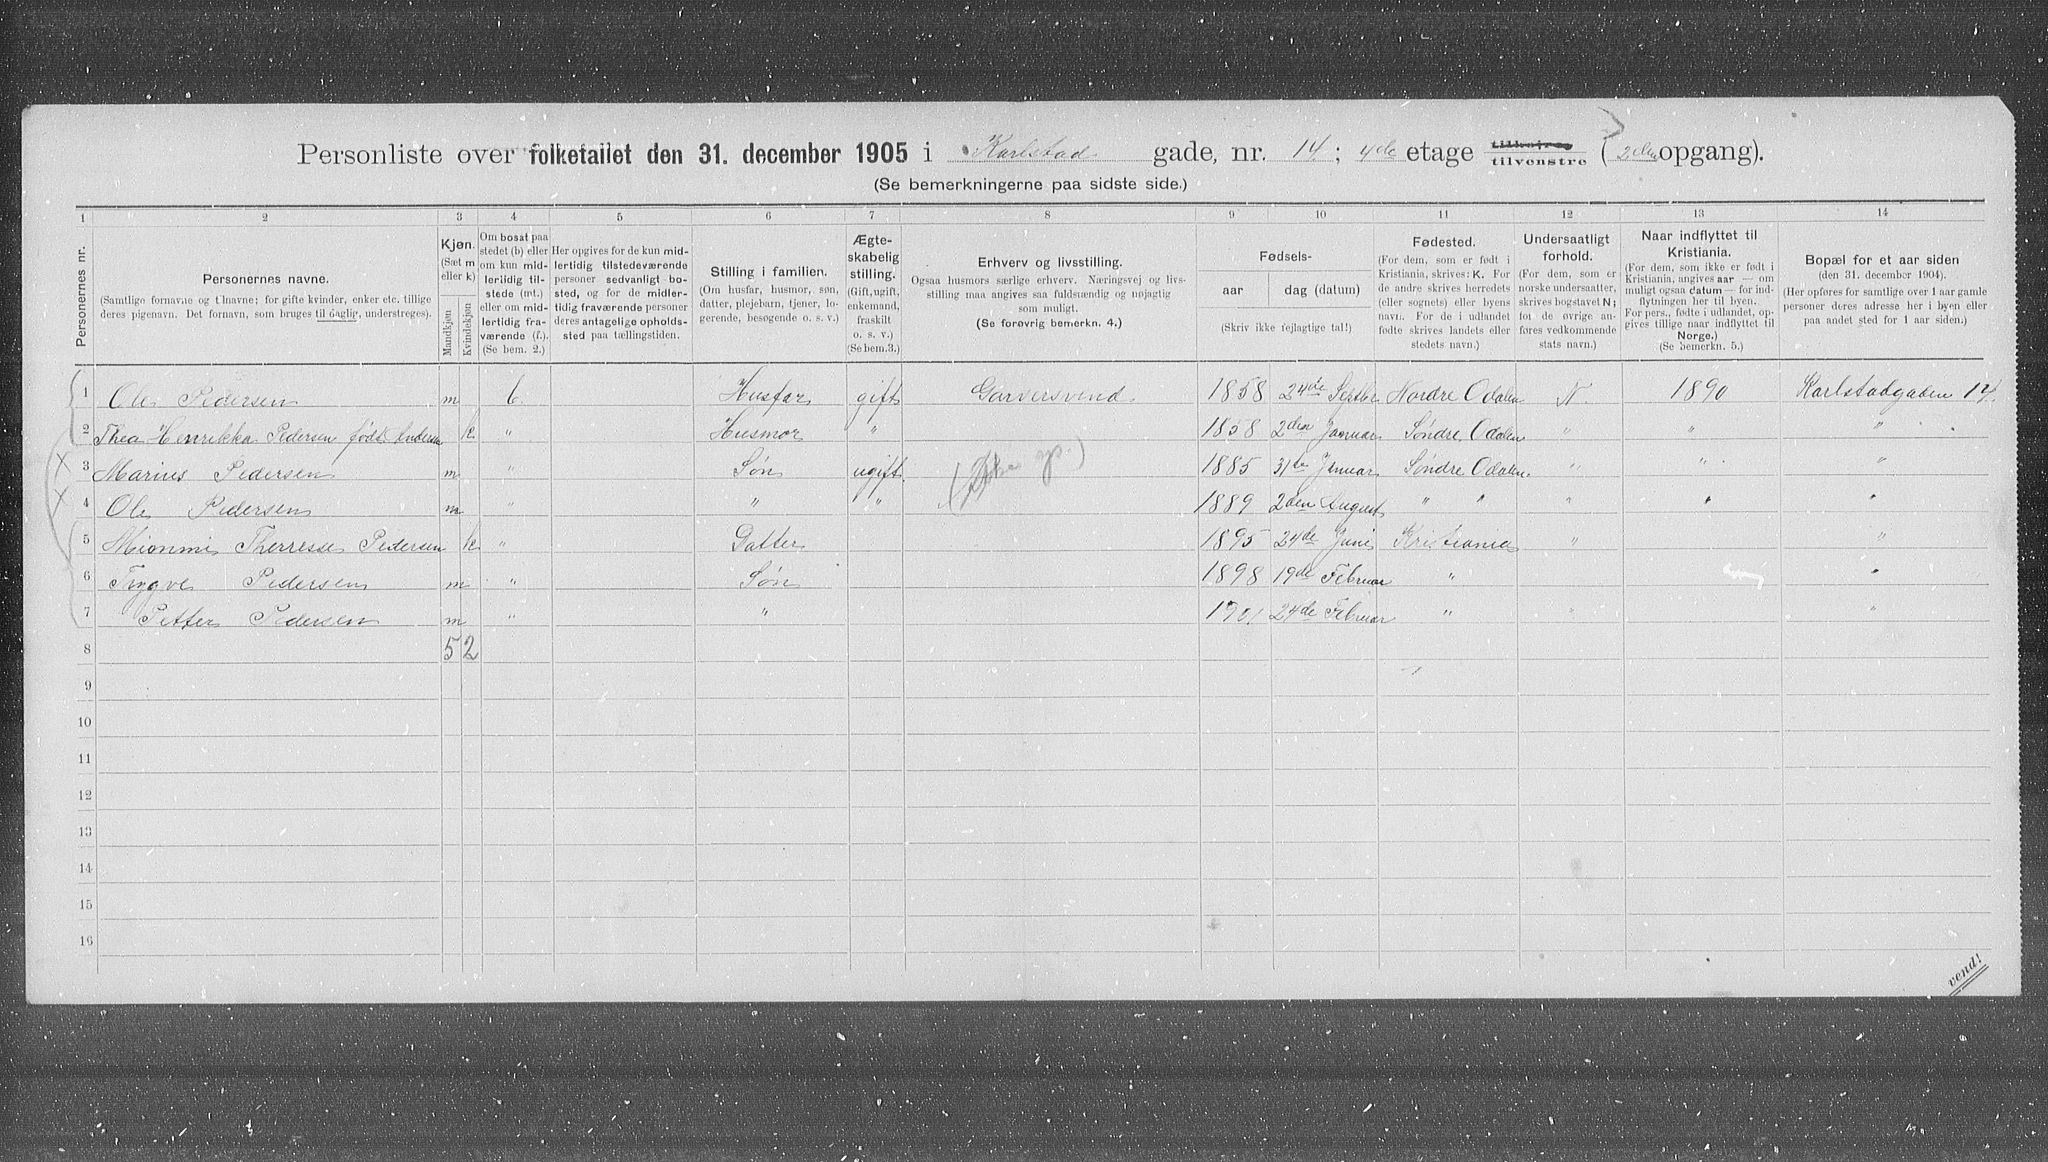 Personliste over folketallet den 31. december 1905 i Karlstad gade, nr. 14; 4de etage tilhøire tilvenstre (2den opgang).
(Se bemerkningerne paa sidste side.)
1 2 3 4 5 6 7 8 9 10 11 12 13 14
Personernes nr.
Personernes navne.
(Samtlige fornavne og tilnavne; for gifte kvinder, enker etc. tillige deres pigenavn. Det fornavn, som bruges til daglig, understreges).
Kjøn.
(Sæt m eller k)
Mandkjøn
Kvindekjøn
Om bosat paa stedet (b) eller om kun midlertidig tilstede (mt.) eller om midlertidig fraværende (f.).
(Se bem. 2.)
Her opgives for de kun midlertidig tilstedeværende personer sedvanligt bosted, og for de midlertidig fraværende personer deres antagelige opholdssted paa tællingstiden.
Stilling i familien.
(Om husfar, husmor, søn, datter, plejebarn, tjener, logerende, besøgende o. s. v.)
Ægteskabelig stilling.
(Gift, ugift, enkemand, fraskilt o. s. v.)
(Se bem. 3.)
Erhverv og livsstilling.
Ogsaa husmors særlige erhverv. Næringsvej og livsstilling maa angives saa fuldstændig og nøjagtig som muligt.
(Se forøvrig bemerkn. 4.)
Fødsels-
aar
dag (datum)
(Skriv ikke fejlagtige tal!)
Fødested.
(For dem, som er født i Kristiania, skrives: K. For de andre skrives herredets (eller sognets) eller byens navn. For de i udlandet fødte skrives landets eller stedets navn.)
Undersaatligt forhold.
(For dem, som er norske undersaatter, skrives bogstavet N; for de øvrige anføres vedkommende stats navn.)
Naar indflyttet til Kristiania.
(For dem, som ikke er født i Kristiania, angives aar — om muligt ogsaa datum — for indflytningen her til byen. For pers., fødte i udlandet, opgives tillige naar indflyttet til Norge.)
(Se bemerkn. 5.)
Bopæl for et aar siden
(den 31. december 1904).
(Her opføres for samtlige over 1 aar gamle personer deres adresse her i byen eller paa andet sted for 1 aar siden.)
1 Ole Pedersen m b Husfar gift Garversvend. 1858 24de Septbr Nordre Odalen N. 1890 Karlstadgaden 14.
2 Thea Henrikka Pedersen født Andersen k " Husmor " 1858 2den Januar Søndre Odalen " " "
3 Marius Pedersen m " Søn ugift 1885 31te Januar Søndre Odalen " " "
4 Ole Pedersen m " " " 1889 2den August " " " " "
5 Mionmi Therresse Pedersen k " Datter 1895 24de Juni Kristiania " "
6 Trygve Pedersen m " Søn 1898 19de Februar " "
7 Petter Pedersen m " " 1901 24de Februar " " "
8 5 2
9
10
11
12
13
14
15
16
vend!